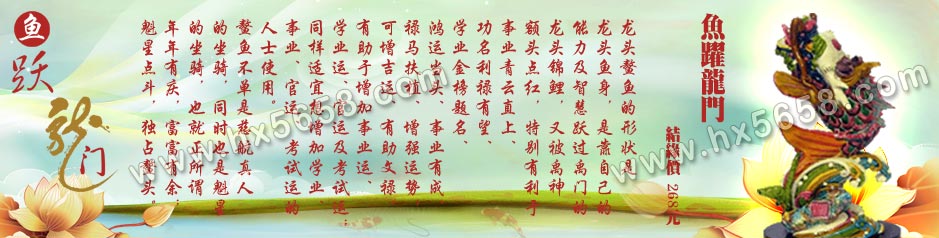 魚躍龍門
結緣價 268元
龙头鳌鱼的形状是
龙头鱼身，是靠自己的
能力及智慧跃过禹门的
龙头锦鲤，又被禹神
额头点红，特别有利于
事业青云直上、
功名利禄有望、
学业金榜题名、
鸿运当头、事业有成、
禄马扶植、增强运势，
可增吉运，有助文禄，
有助于增加事业运、
学业运、官运及考试运；
同样适宜想增加学业、
事业、官运、考试运的
人士使用。
鳌鱼不单是慈航真人
的坐骑，同时也是魁星
的坐骑，也就正所谓
年年有庆，富富有余；
魁星点斗，独占鳌头。
鱼跃龍门
www.hx5658.com
www.hx5658.com
www.hx5658.com